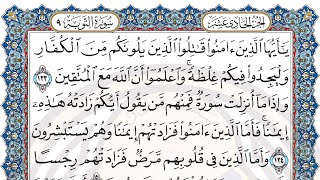 الجزء الحادي عشر سورة التوبة ٩
يَٰٓأَيُّهَا ٱلَّذِينَ ءَامَنُوا۟ قَٰتِلُوا۟ ٱلَّذِينَ يَلُونَكُم مِّنَ ٱلْكُفَّارِ
وَلْيَجِدُوا۟ فِيكُمْ غِلْظَةً ۚ وَٱعْلَمُوٓا۟ أَنَّ ٱللَّهَ مَعَ ٱلْمُتَّقِينَ ١٢٣
وَإِذَا مَآ أُنزِلَتْ سُورَةٌ فَمِنْهُم مَّن يَقُولُ أَيُّكُمْ زَادَتْهُ هَٰذِهِۦٓ
إِيمَٰنًا ۚ فَأَمَّا ٱلَّذِينَ ءَامَنُوا۟ فَزَادَتْهُمْ إِيمَٰنًا وَهُمْ يَسْتَبْشِرُونَ ١٢٤
وَأَمَّا ٱلَّذِينَ فِى قُلُوبِهِم مَّرَضٌ فَزَادَتْهُمْ رِجْسًا